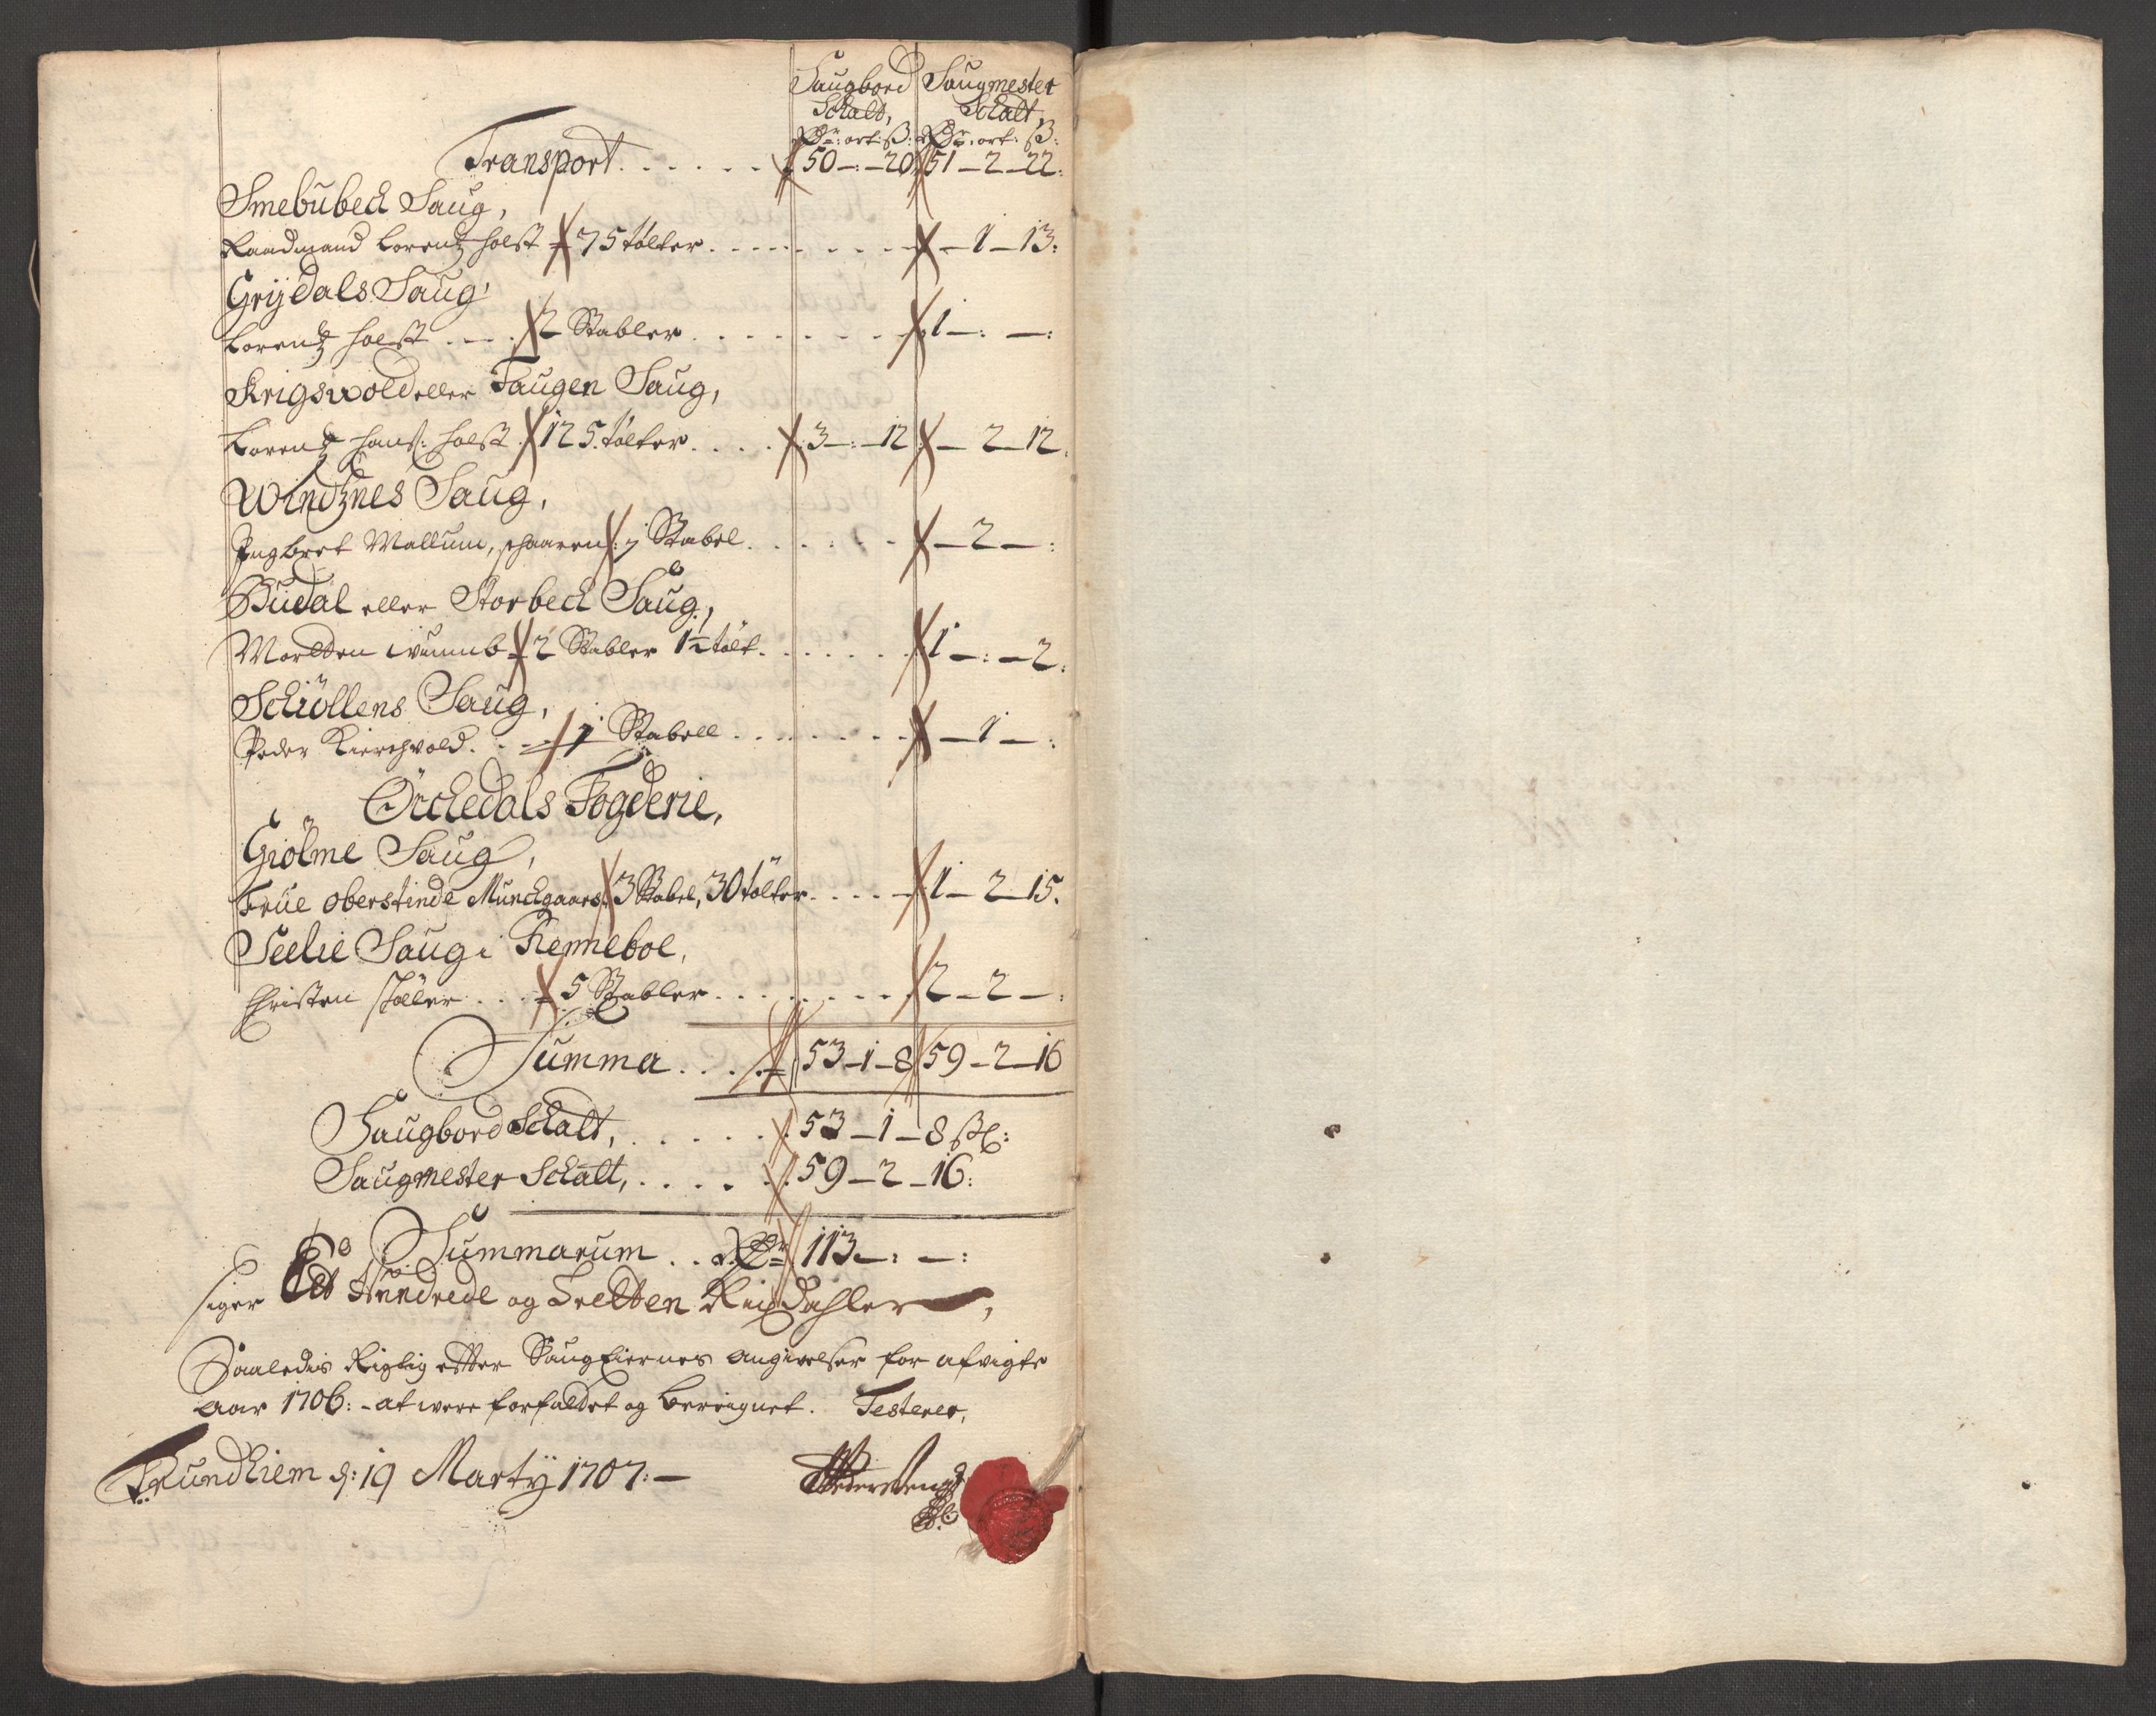 Saugbord Saugmester
Schatt, Schatt,
Rdr: ort: ß: Rdr: ort: ß:
Transport . . . . . . 50 - : - 20 51 - 2 - 22:
Smebubech Saug,
Raadmand Lorentz Holst 75 tölter . . . . . . . . - 1 - 13:
Grijdals Saug,
Lorentz Holst . . . . 2 Stabler . . . . . . . 1 - : - :
Krigsvold eller Haugen Saug,
Lorentz Hanß: Holst . 125 tölter . . . . 3 - : - 12 - 2 - 12.
Windznes Saug,
Ingbret Wollum, : 1 Stabel . . . . . . - 2 - :
Budal eller Storbech Saug,
Morten 2 Stabler 1½ tölt . . . . . . . 1 - : - 2:
Schiöllens Saug,
Peder Kierchvold . . . 1 Stabell . . . . . . . . - 1 - :
Örchedals Fogderie,
Giölme Saug,
Frue Oberstinde Munchgaard 3 Stabel, 30 tölter . . . . 1 - 2 - 15.
Seelie Saug i Renneboe,
Christen . . . 5 Stabler . . . . . . . . 2 - 2 - :
Summa . . . . 53 - 1 - 8 59 - 2 - 16
Saugbord Schatt, . . . . . . . 53 - 1 - 8 ßl:
Saugmester Schatt, . . . . . . 59 - 2 - 16:
Summarum . . Rdr 113 - : - :
siger Et Hundrede og Tretten Rixdahler,
Saaledis Rigtig efter Saug Eiernes angivelser for afvigte
aar 1706: - at were forfaldet og beregnet. Testerer,
Trundhiem d: 19 Martij 1707: -